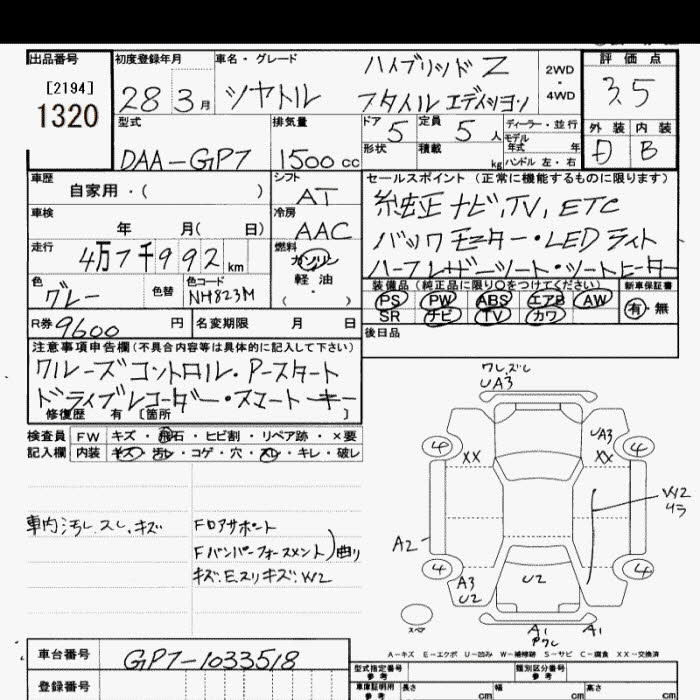 出品番号 初度登録年月 車名・グレード 評価点
[2194]
1320
28 3月 シャトル ハイブリッドZ
スタイルエディション
2WD
・
4WD
3.5
型式 排気量 ドア 5 定員 5 人 ディーラー・並行 外装 内装
モデル年式 年
DAA-GP7 1500cc 形状 積載 kg ハンドル 左・右 D B
車歴 自家用・( ) シフト AT
セールスポイント (正常に機能するものに限ります)
車検 年 月( 日) 冷房 AAC
純正ナビ,TV, ETC
バックモニター・LEDライト
ハーフレザーシート・シートヒーター
走行 4万7千992km 燃料 ガソリン
軽油
( ・ )
色 グレー 色替 色コード NH823M
装備品 (純正品に限り○をつけてください) 新車保証書
PS PW ABS エアB AW 有・無
SR ナビ TV カワ
R券 9600 円 名変期限 月 日
後日品
注意事項申告欄(不具合内容等は具体的に記入して下さい)
クルーズコントロール・Pスタート
ドライブレコーダー・スマートキー
修復歴 有 [箇所 ]
検査員 FW キズ・飛石・ヒビ割・リペア跡・×要
記入欄 内装 キズ・汚レ・コゲ・穴・スレ・キレ・破レ
車内汚レ.スレ.キズ
Fロアサポート
Fバンパーフォースメント)曲り
キズ.E.スリキズ.W2
ワレ.ズレ
UA3
UA3
4 XX XX 4
W2
リラ
A2
4 A3
U2 U2 4
スペア A1 A1
Pワレ
A-キズ E-エクボ U-凹み W-補修跡 S-サビ C-腐食 XX-交換済
車台番号 GP7-1033518
型式指定番号
参考
類別区分番号
参考
登録番号 車庫証明用
参考
長さ cm 幅 cm 高さ cm